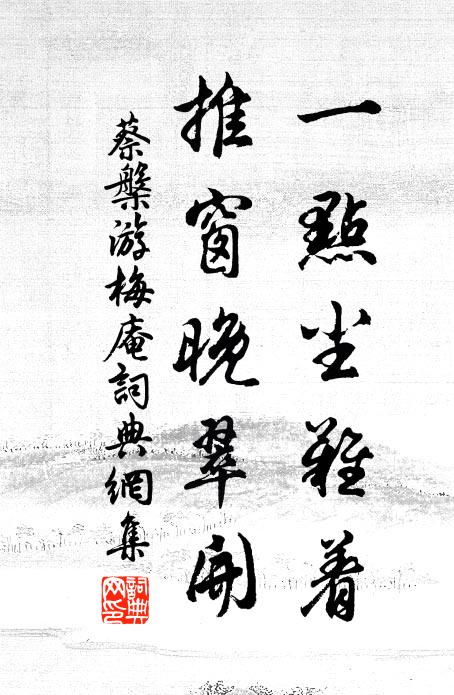 一點尘難着
推窗晚翠開
蔡槃游梅庵詞典網集
詞典网印